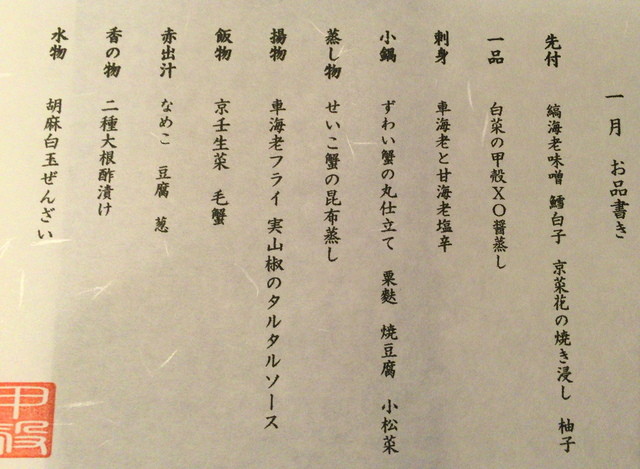 一月 お品書き
先付 縞海老味噌 鱈白子 京菜花の焼き浸し 柚子
一品 白菜の甲殻XO醤蒸し
刺身 車海老と甘海老塩辛
小鍋 ずわい蟹の丸仕立て 粟麩 焼豆腐 小松菜
蒸し物 せいこ蟹の昆布蒸し
揚物 車海老フライ 実山椒のタルタルソース
飯物 京壬生菜 毛蟹
赤出汁 なめこ 豆腐 葱
香の物 二種大根酢漬け
水物 胡麻白玉ぜんざい
甲殻